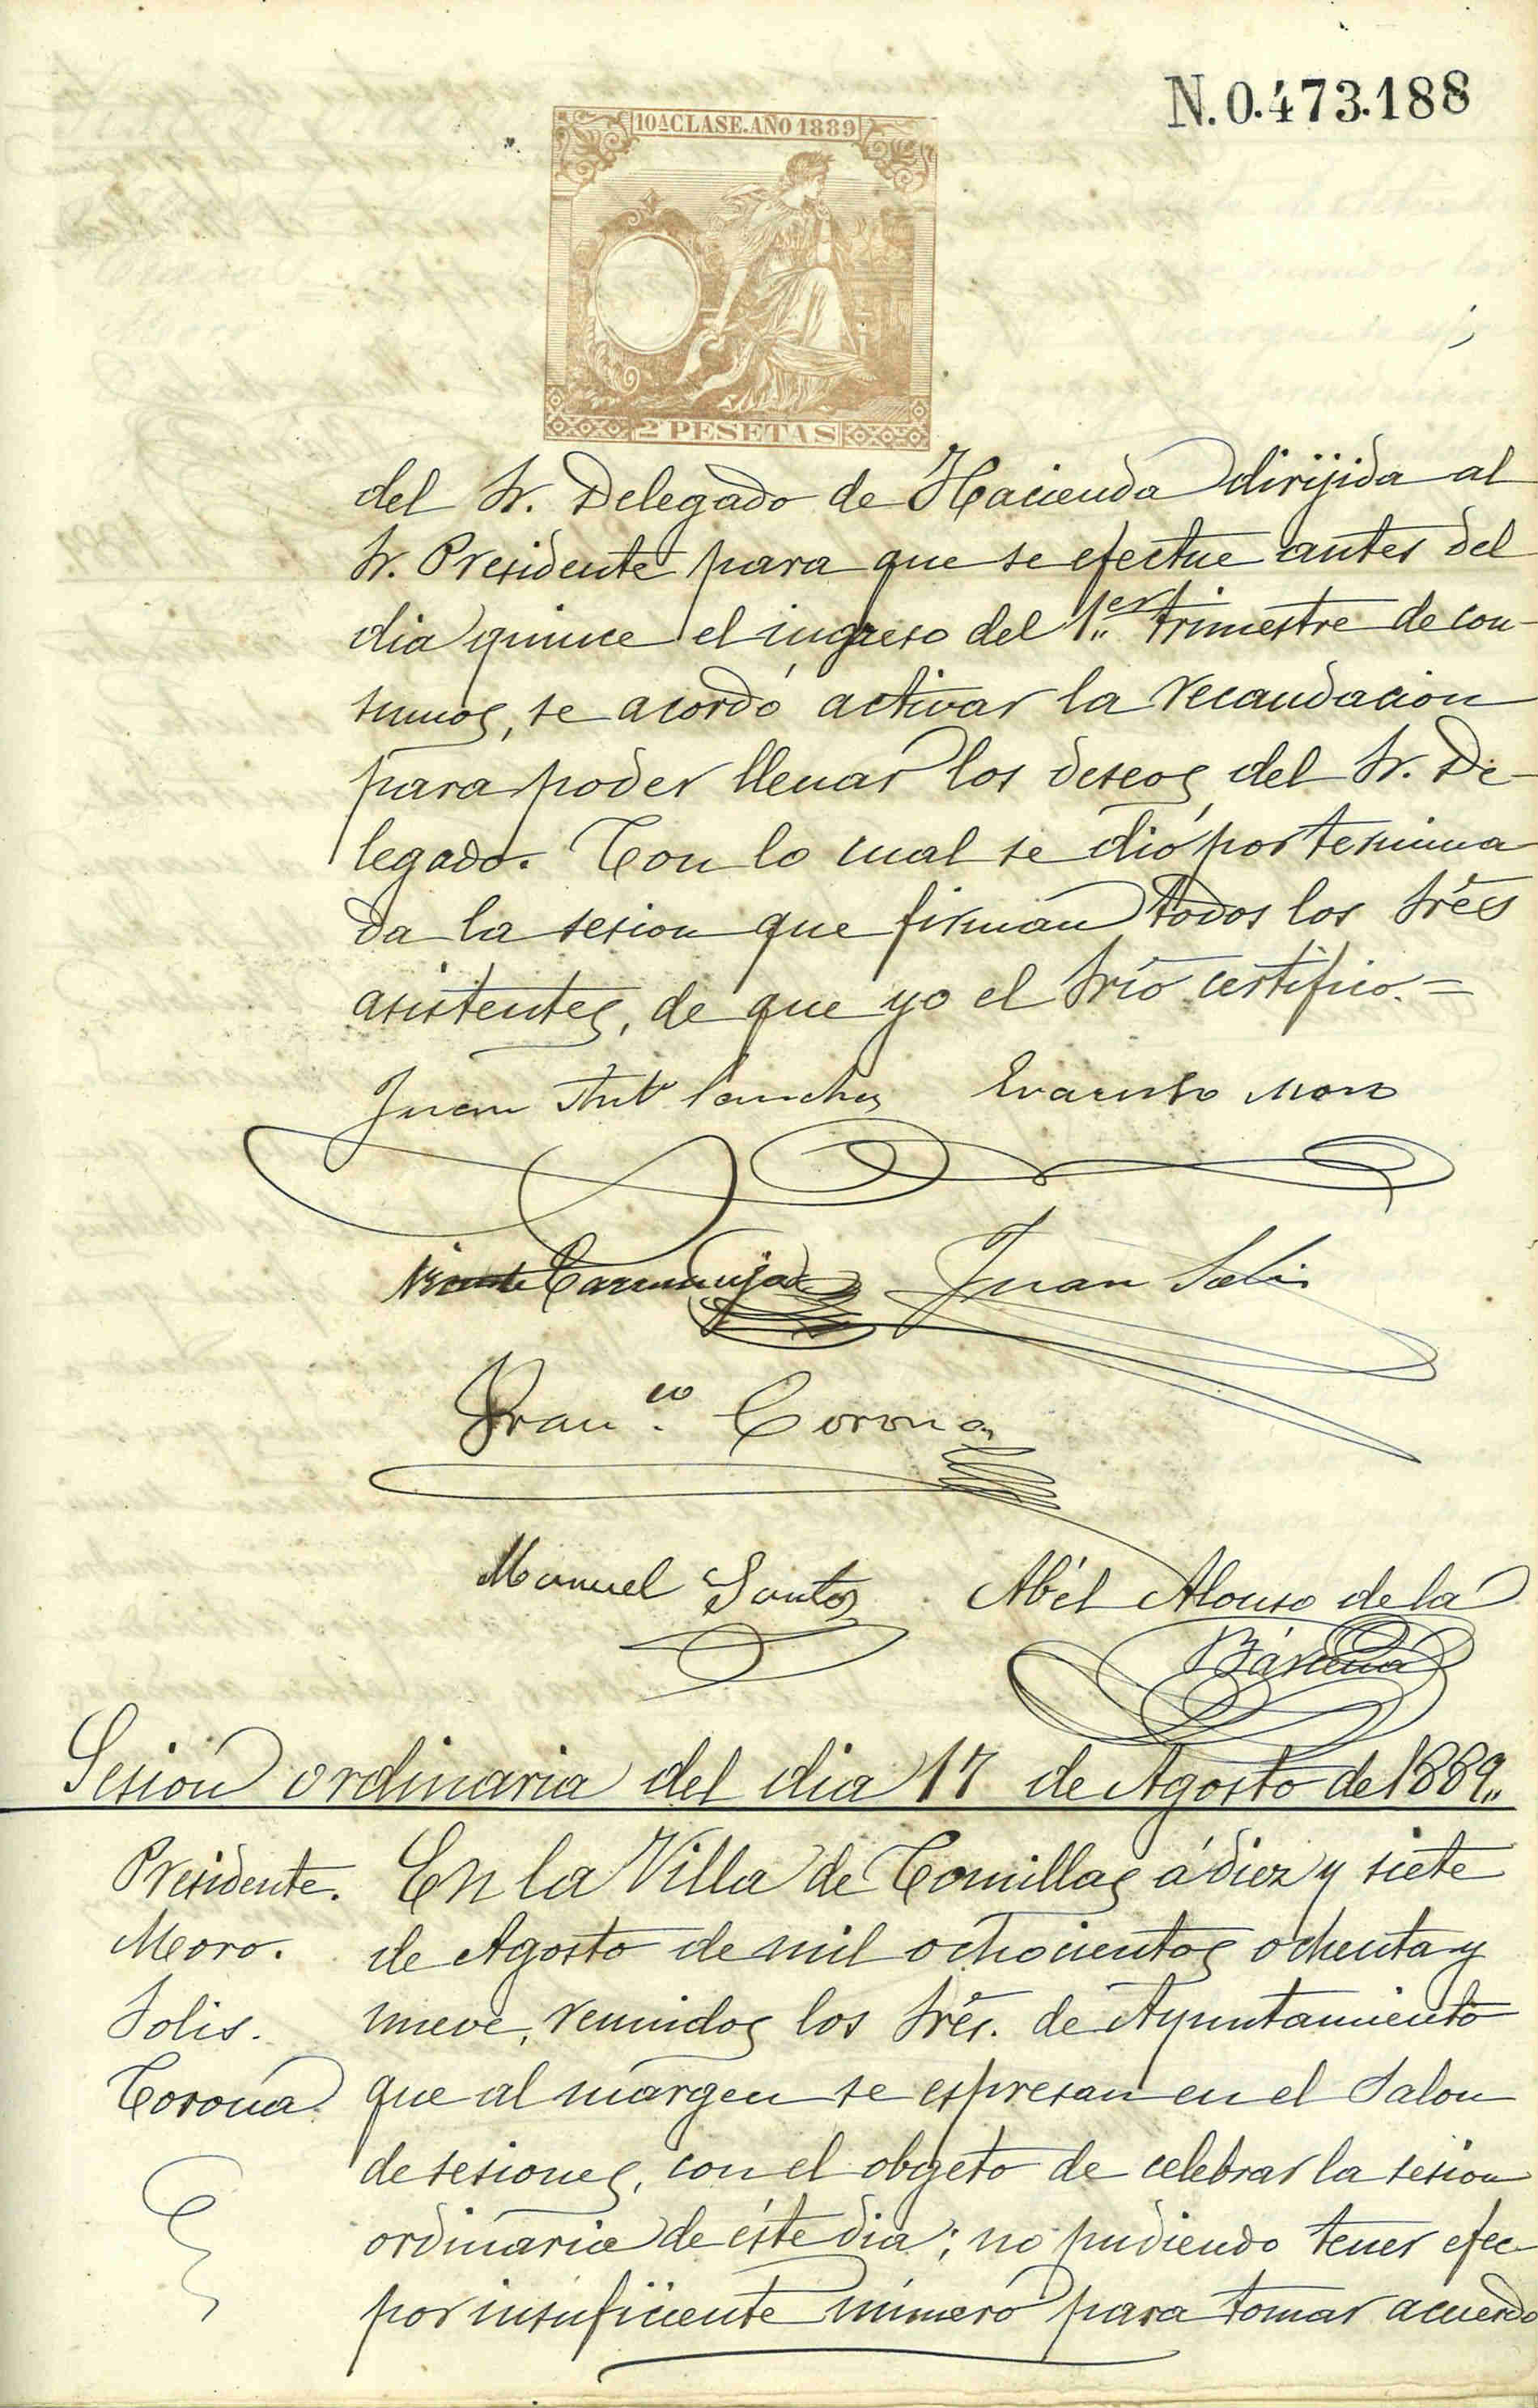 N.0.473.188
10ª CLASE. AÑO 1889
2 PESETAS
del Sr. Delegado de Hacienda dirijida al
Sr. Presidente para que se efectue antes del
dia quince el ingreso del 1.er trimestre de con-
sumos, se acordó activar la recaudacion
para poder llenar los deseos del Sr. De-
legado. Con lo cual se dió por termina
da la sesion que firman todos los Sres
asistentes, de que yo el Srio certifico.=
Juan Antº Sanchez Evaristo Moro
Vicente Juan Solis
Fran.co Corona
Manuel Santos Abél Alonso de la
Bárcena
Sesion ordinaria del dia 17 de Agosto de 1889.,
Presidente.
Moro.
Solis.
Corona
En la Villa de Comillas á diez y siete
de Agosto de mil ochocientos ochenta y
nueve, reunidos los Sres. de Ayuntamiento
que al margen se espresan en el Salon
de sesiones, con el obgeto de celebrar la sesion
ordinaria de éste dia; no pudiendo tener efec
por insuficiente número para tomar acuerdo